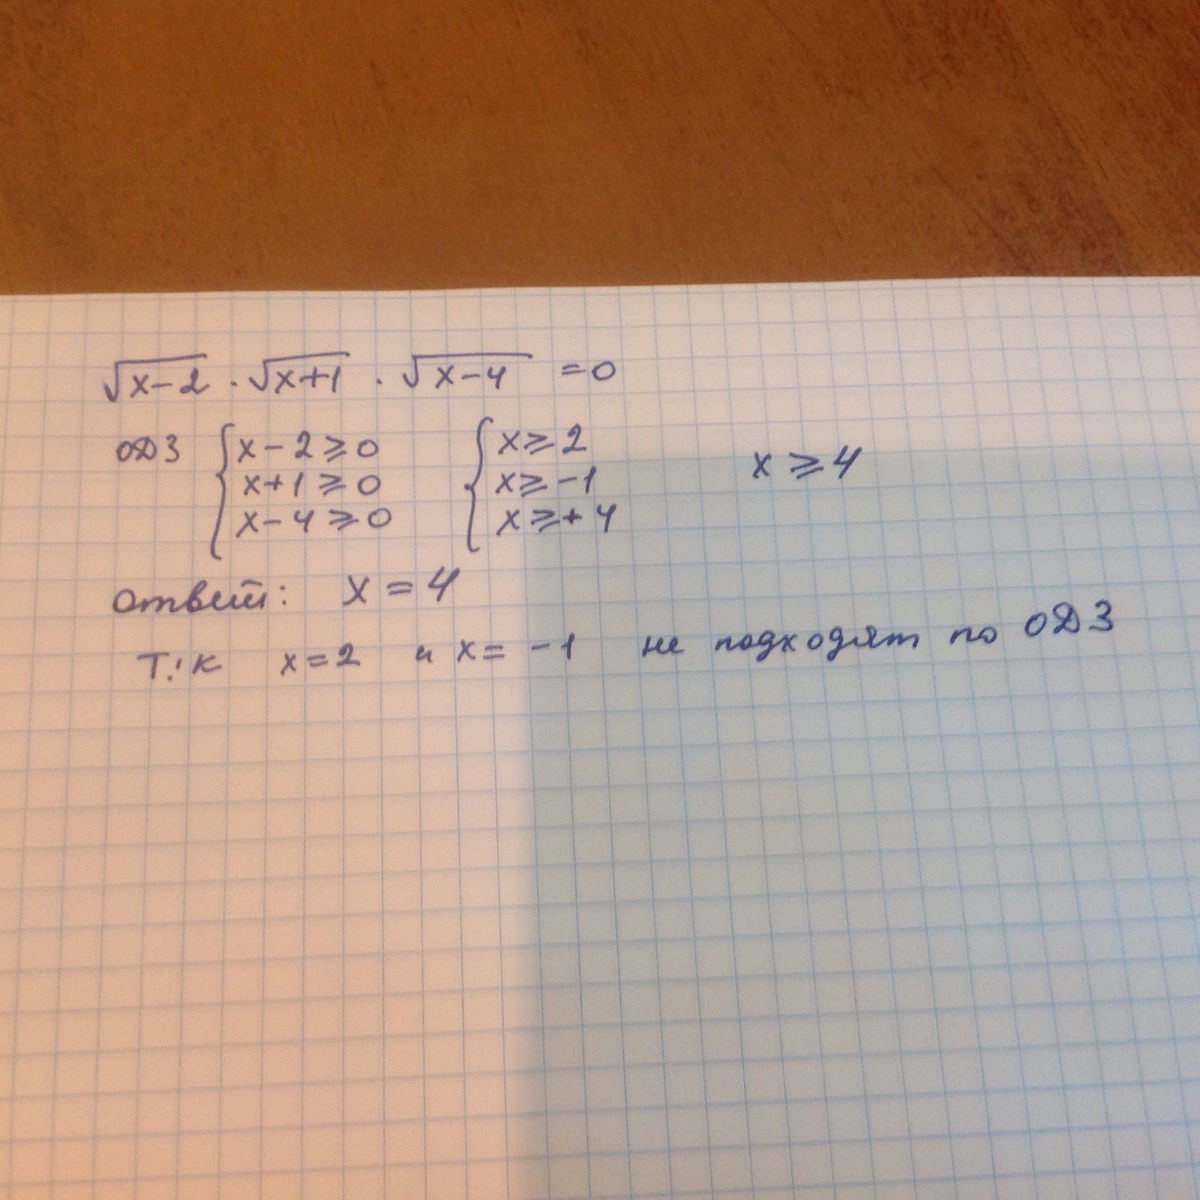 √x-2 · √x+1 · √x-4 = 0
ОДЗ { x - 2 ⩾ 0 { x ⩾ 2 x ⩾ 4
x+1 ⩾ 0 x ⩾ -1
x - 4 ⩾ 0 x ⩾ + 4
Ответ: x = 4
т.к x = 2 и x = -1 не подходят по ОДЗ